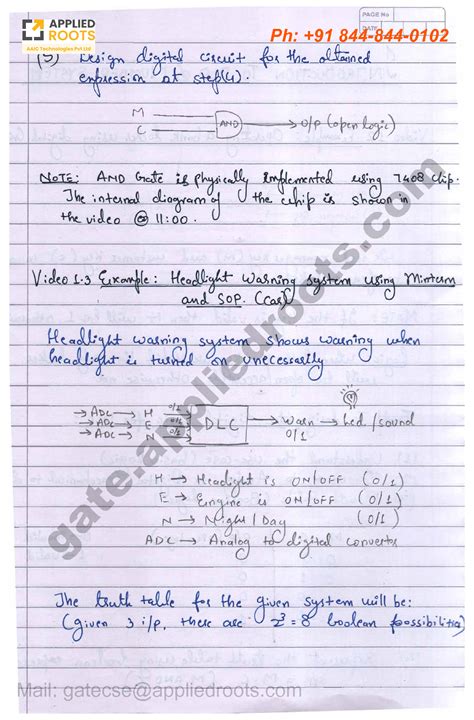 APPLIED
ROOTS
AAIC Technologies Pvt Ltd
Ph: +91 844-844-0102
PAGE No
DATE
(5) Design digital circuit for the obtained
expression at step(4).
M
C
AND
O/P (open logic)
NOTE: AND Gate is physically implemented using 7408 chip.
The internal diagram of the chip is shown in
the video @ 11:00.
Video 1.3 Example: Headlight Warning system using Minterm
and SOP. (Cas
Headlight warning system shows warning when
headlight is turned on unecessarily
→ ADC → H 0/1
→ ADC → E 0/1
→ ADC → N 0/1
DLC
→ Warn → led/sound
0/1
H → Headlight is ON/OFF (0/1)
E → Engine is ON/OFF (0/1)
N → Night/Day (0/1)
ADC → Analog to digital convertor
The truth table for the given system will be:
(given 3 i/p, there are 2³=8 boolean possibilities)
gate.appliedroots.com
Mail: gatecse@appliedroots.com